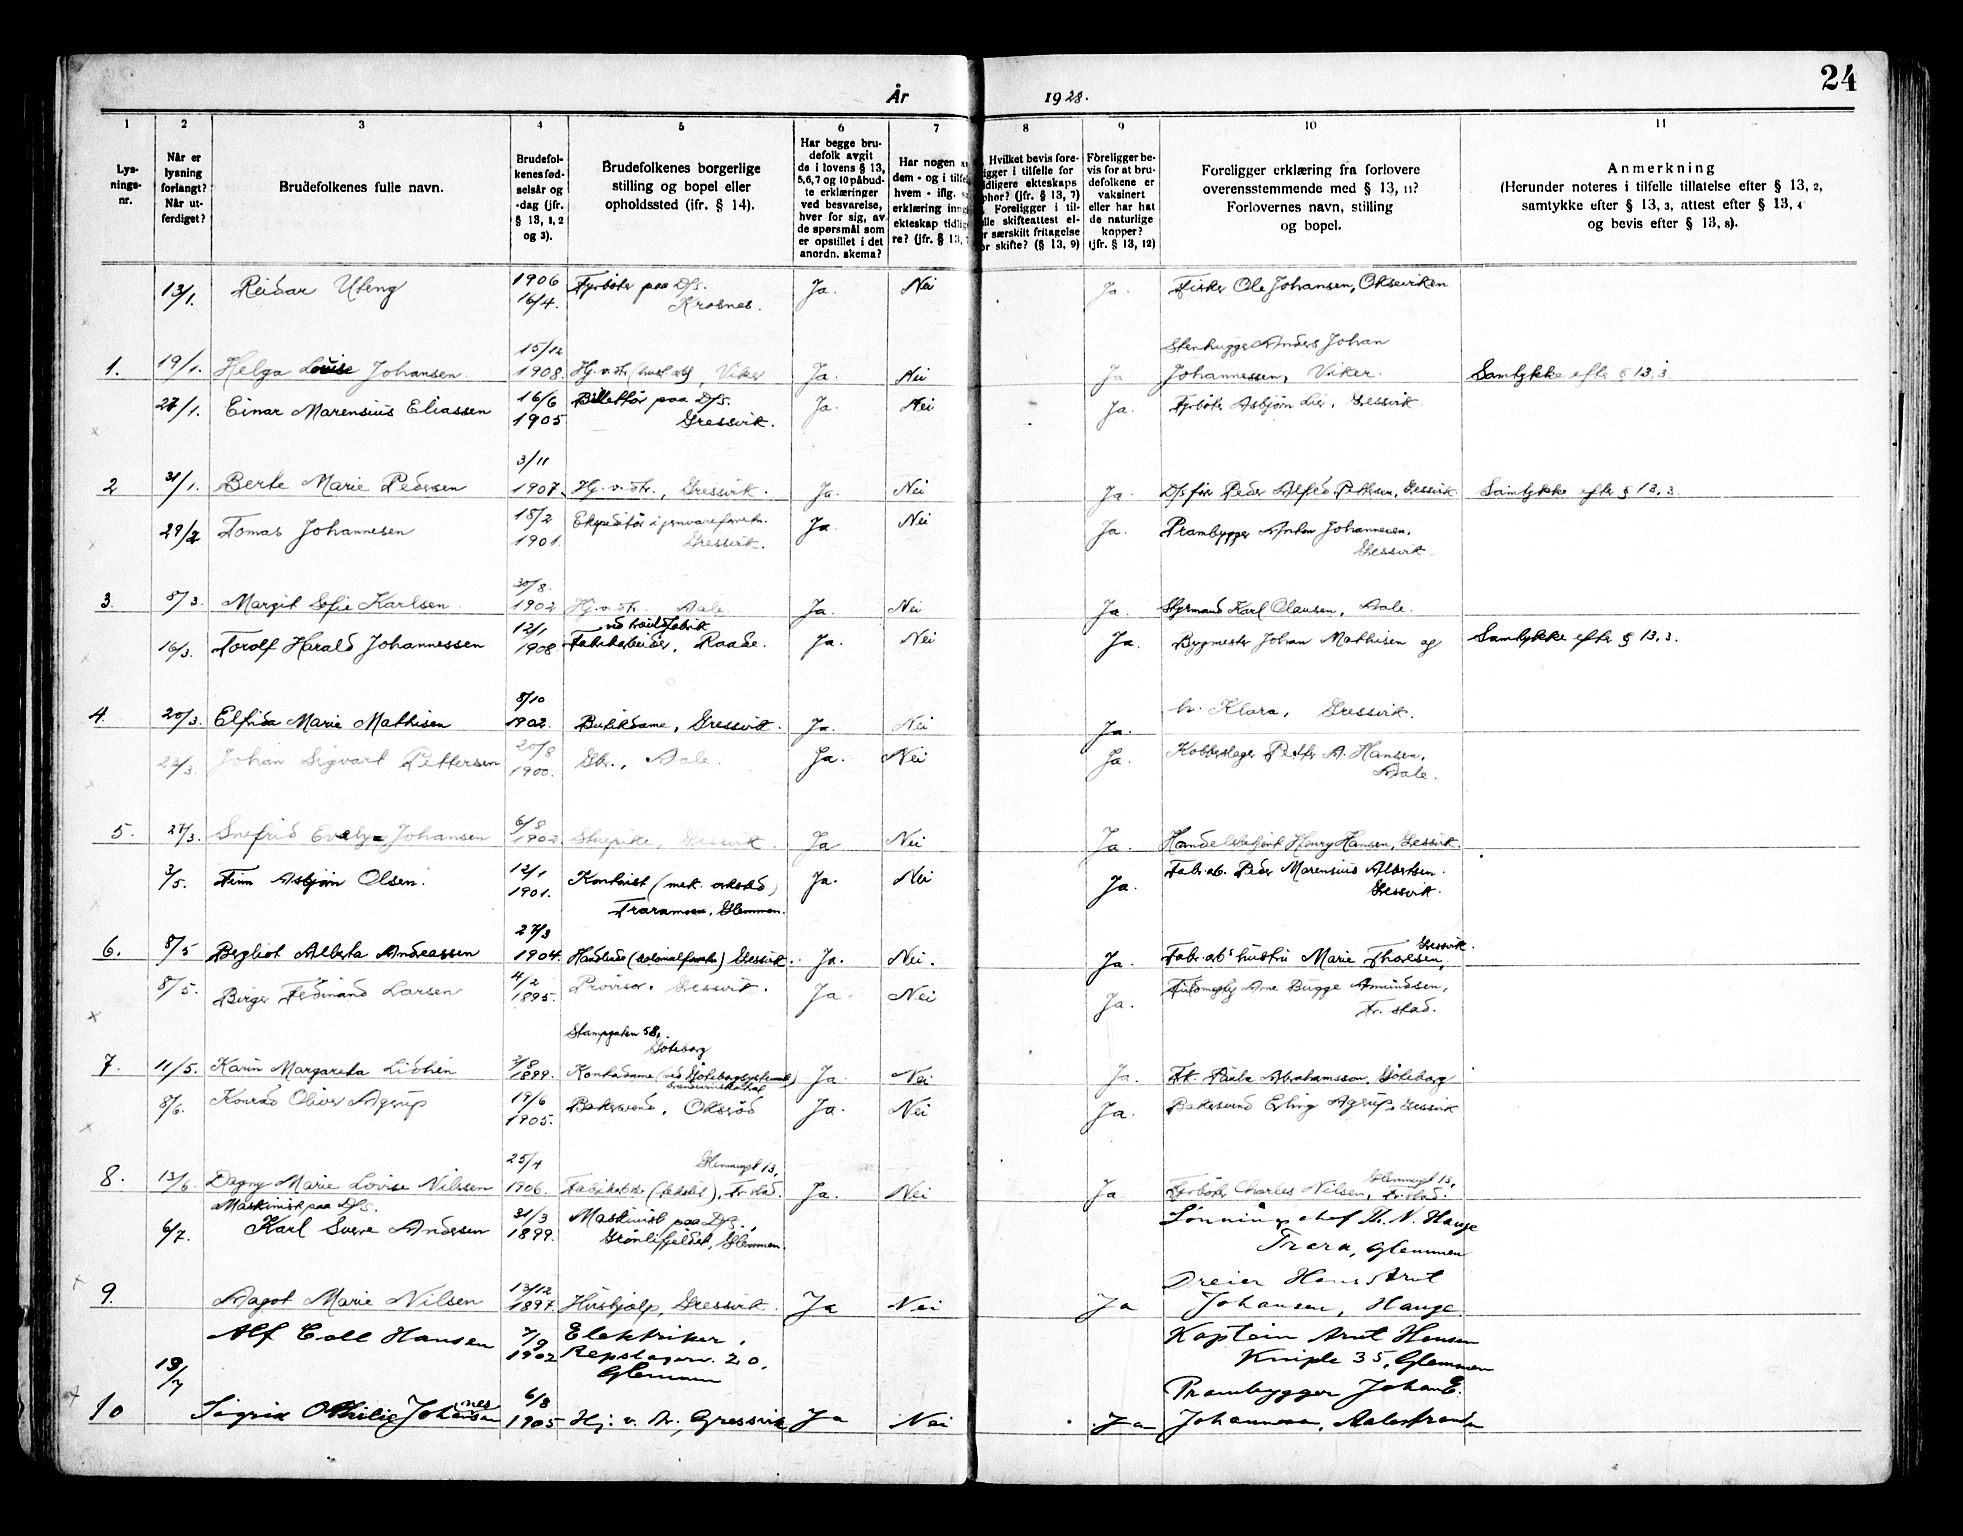 24
År 1928.
1 2 3 4 5 6 7 8 9 10 11
Lys-
nings-
nr.
Når er
lysning
forlangt?
Når ut-
ferdiget?
Brudefolkenes fulle navn.
Brudefol-
kenes fød-
selsår og
-dag (jfr.
§ 13, 1, 2
og 3).
Brudefolkenes borgerlige
stilling og bopel eller
opholdssted (ifr. § 14).
Har begge bru-
defolk avgit
de i lovens § 13,
5,6,7 og 10 påbud-
te erklæringer
ved besvarelse,
hver for sig, av
de spørsmål som
er opstillet i det
anordn. skema?
Har nogen
dem - og i
hvem - iflg.
erklæring
ekteskap
re? (jfr. § 13,
Hvilket bevis fore-
ligger i tilfelle for
tidligere ekteskaps
ophør? (jfr. § 13, 7)
Foreligger i til-
felle skifteattest el-
ler særskilt fritagelse
for skifte? (§ 13, 9)
Foreligger be-
vis for at bru-
defolkene er
vaksinert
eller har hat
de naturlige
kopper?
(jfr. § 13, 12)
Foreligger erklæring fra forlovere
overensstemmende med § 13, 11?
Forlovernes navn, stilling
og bopel.
Anmerkning
(Herunder noteres i tilfelle tillatelse efter § 13, 2,
samtykke efter § 13, 3, attest efter § 13, 4
og bevis efter § 13, 8).
13/1. Reidar Uteng 1906 16/4. Fyrbøter paa D/S. Ja. Nei Ja. Fisker Ole Johansen, Oksviken
Krosnes.
15/12 Stenhugger Anders Johan
1. 19/1. Helga Louise Johansen. 1908. Hj. v. str. Viker Ja. Nei Ja Johannessen, Viker. Samtykke efter § 13, 3
27/1. Einar Marensius Eliassen 16/6 1905 Billettør paa D/S. Ja. Nei Ja. Fyrbøter Asbjørn Lier, Gressvik.
Gressvik.
3/11
2 31/1. Berte Marie Pedersen 1907. Hj. v. str., Gressvik. Ja. Nei Ja. D/S fører Peder Alfred Pettersen, Gressvik Samtykke efter § 13, 3.
29/2 Tomas Johannesen 18/2 1901. Ekspeditør i jernvareforretn. Ja. Nei Ja. Prambygger Anton Johannesen,
Gressvik. Gressvik.
30/8.
3. 8/3. Margit Sofie Karlsen. 1902 Hj. v. str. Aale. Ja. Nei Ja. Styrmand Karl Olausen, Aale.
16/3. Torolf Harald Johannessen 12/1 1908 Fabrikarbeider, Raade. Ja. Nei Ja. Bygmester Johan Mathisen og Samtykke efter § 13, 3.
8/10
4. 20/3. Elfrida Marie Mathisen 1902. Butikdame, Gressvik. Ja. Nei Ja. h. Klara, Gressvik.
23/3. Johan Sigvart Pettersen 20/8 1900. Gbr., Aale. Ja. Nei Ja. Kobberslager Petter A. Hansen,
Aale.
6/8
5. 27/3. Snefrid Evelyn Johansen 1902 Gressvik. Ja Nei Ja. Handelsbetjent Henry Hansen, Gressvik.
3/5. Finn Asbjørn Olsen. 12/1 1901. Kontorist (mek. verksted) Ja. Nei Ja. Fabr. arb. Peder Marensius Albertsen.
Traramoen, Glemmen. Gressvik.
27/3
6. 8/5 Bergliot Alberta Andreassen 1904. Handlende (kolonialforretn) Gressvik. Ja. Nei. Ja. Fabr. arb.s hustru Marie Thoresen, Gressvik.
8/5. Birger Ferdinand Larsen 4/2 1895. Provisor. Gressvik. Ja. Nei Ja. Arne Bugge Amundsen,
Fr.stad.
Stampgaten 58,
Göteborg
7. 11/5. Karin Margareta Lidhén 3/8 1899. Kontordame Ja. Nei Ja. Frk. Paula Abrahamsson, Göteborg
8/6. Konrad Oliver Agrup 19/6 1905. Bakersvend, Oksrød Ja. Nei Ja. Bakersvend Erling Agrup, Gressvik
25/4
8. 13/6. Dagny Marie Lovise Nilssen 1906. Fr.stad. Ja. Nei Ja Fyrbøter Charles Nilsen, Fr.stad.
Maskinist paa D/S.
6/7. Karl Sverre Andersen 31/3 1899. Maskinist paa D/S., Lønningschef Th. N. Hauge
Grønlifjeldet, Glemmen. Trara, Glemmen
13/12 Dreier Hans Arnt
9. Aagot Marie Nilsen 1897. Hushjælp, Gressvik. Ja Nei Ja Johansen, Hauge
Alf Coll Hansen 7/9 1902 Elektriker, Kaptein Arnt Hansen
13/7 Repslagerv. 20, Kniple 35, Glemmen
Glemmen
6/8 Prambygger Johan E.
10 Sigrid Othilie Johannesen 1905 Hj. v. str., Gressvik Ja Nei Ja Johannesen, Aalestranden